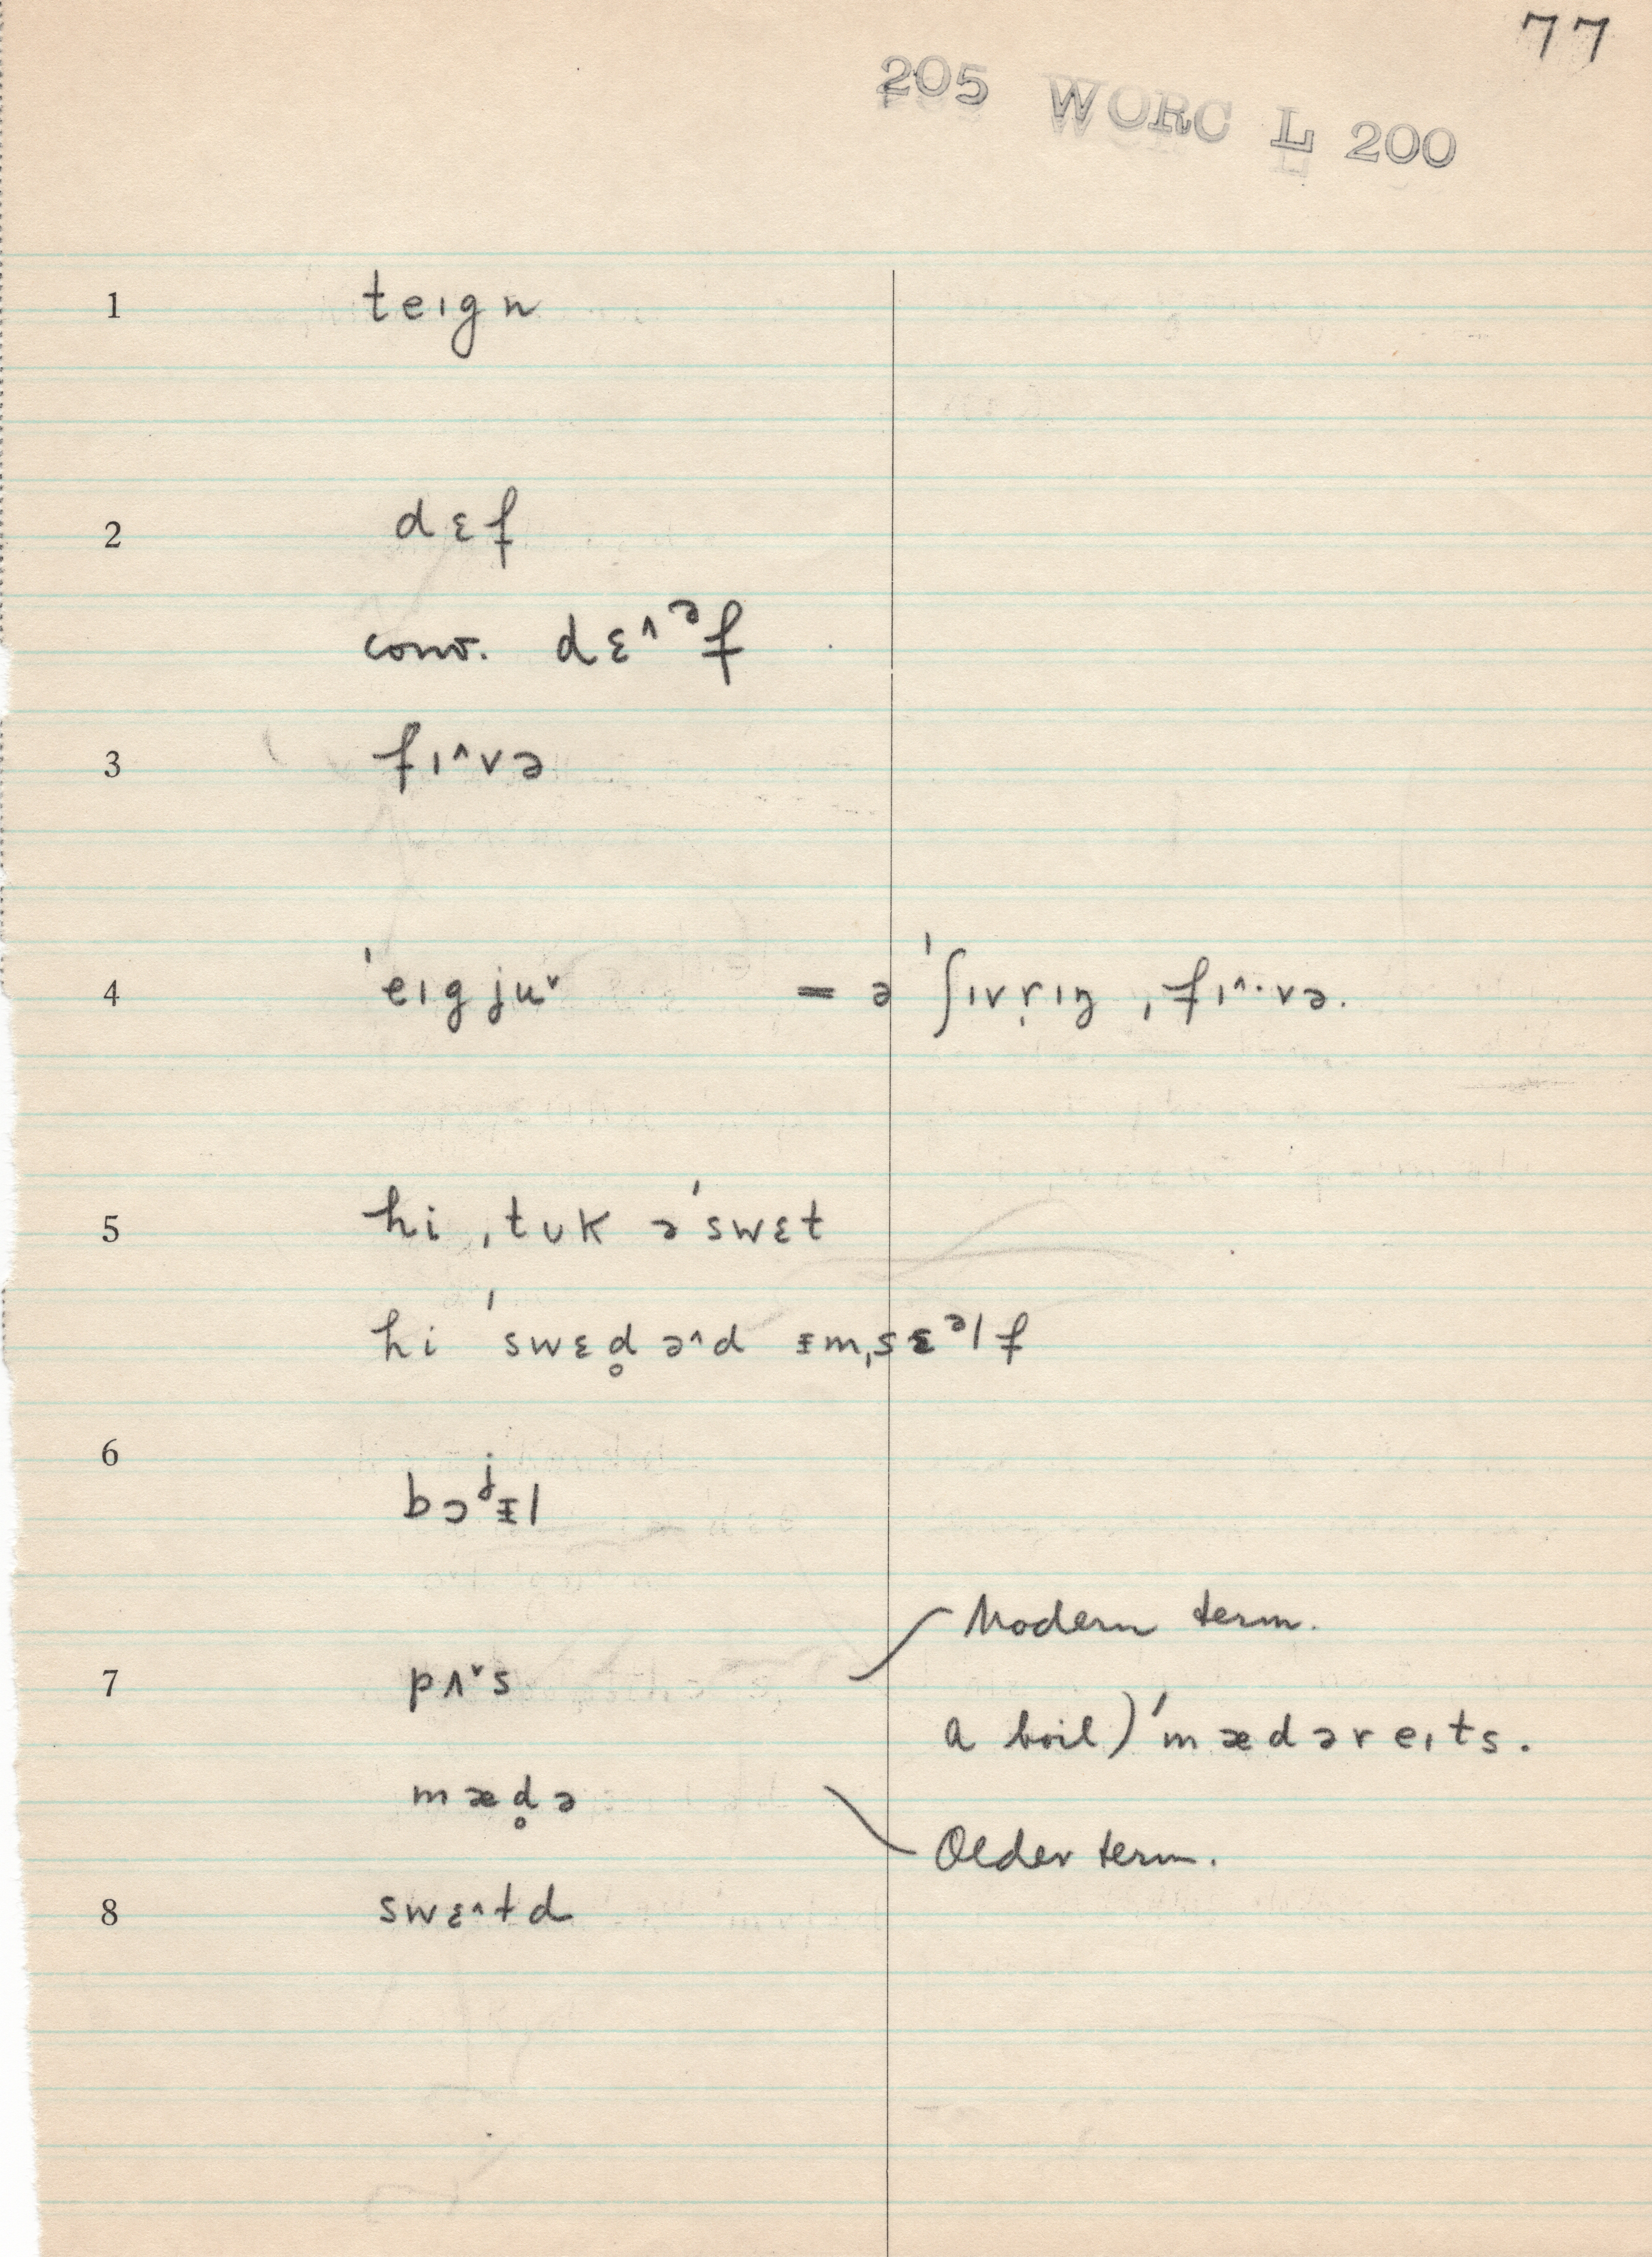 77
205 WORC L 200
1 teɪgn
2 dɛf
conv. dɛ˄ᵊf
3 fɪ˄və
4 ˈeɪgju˅ = ə ˈʃɪvṛɪŋ ˌfɪ˄·və.
5 hi ˌtʊk əˈswɛt
hi ˈswɛd̥ə˄d ᵻmˌsɛᵊlf
6 bɔʲᵻl
7 pʌ˅s Modern term.
a boil) ˈmædəreɪts.
mæd̥ə Older term.
8 swɛ˄td